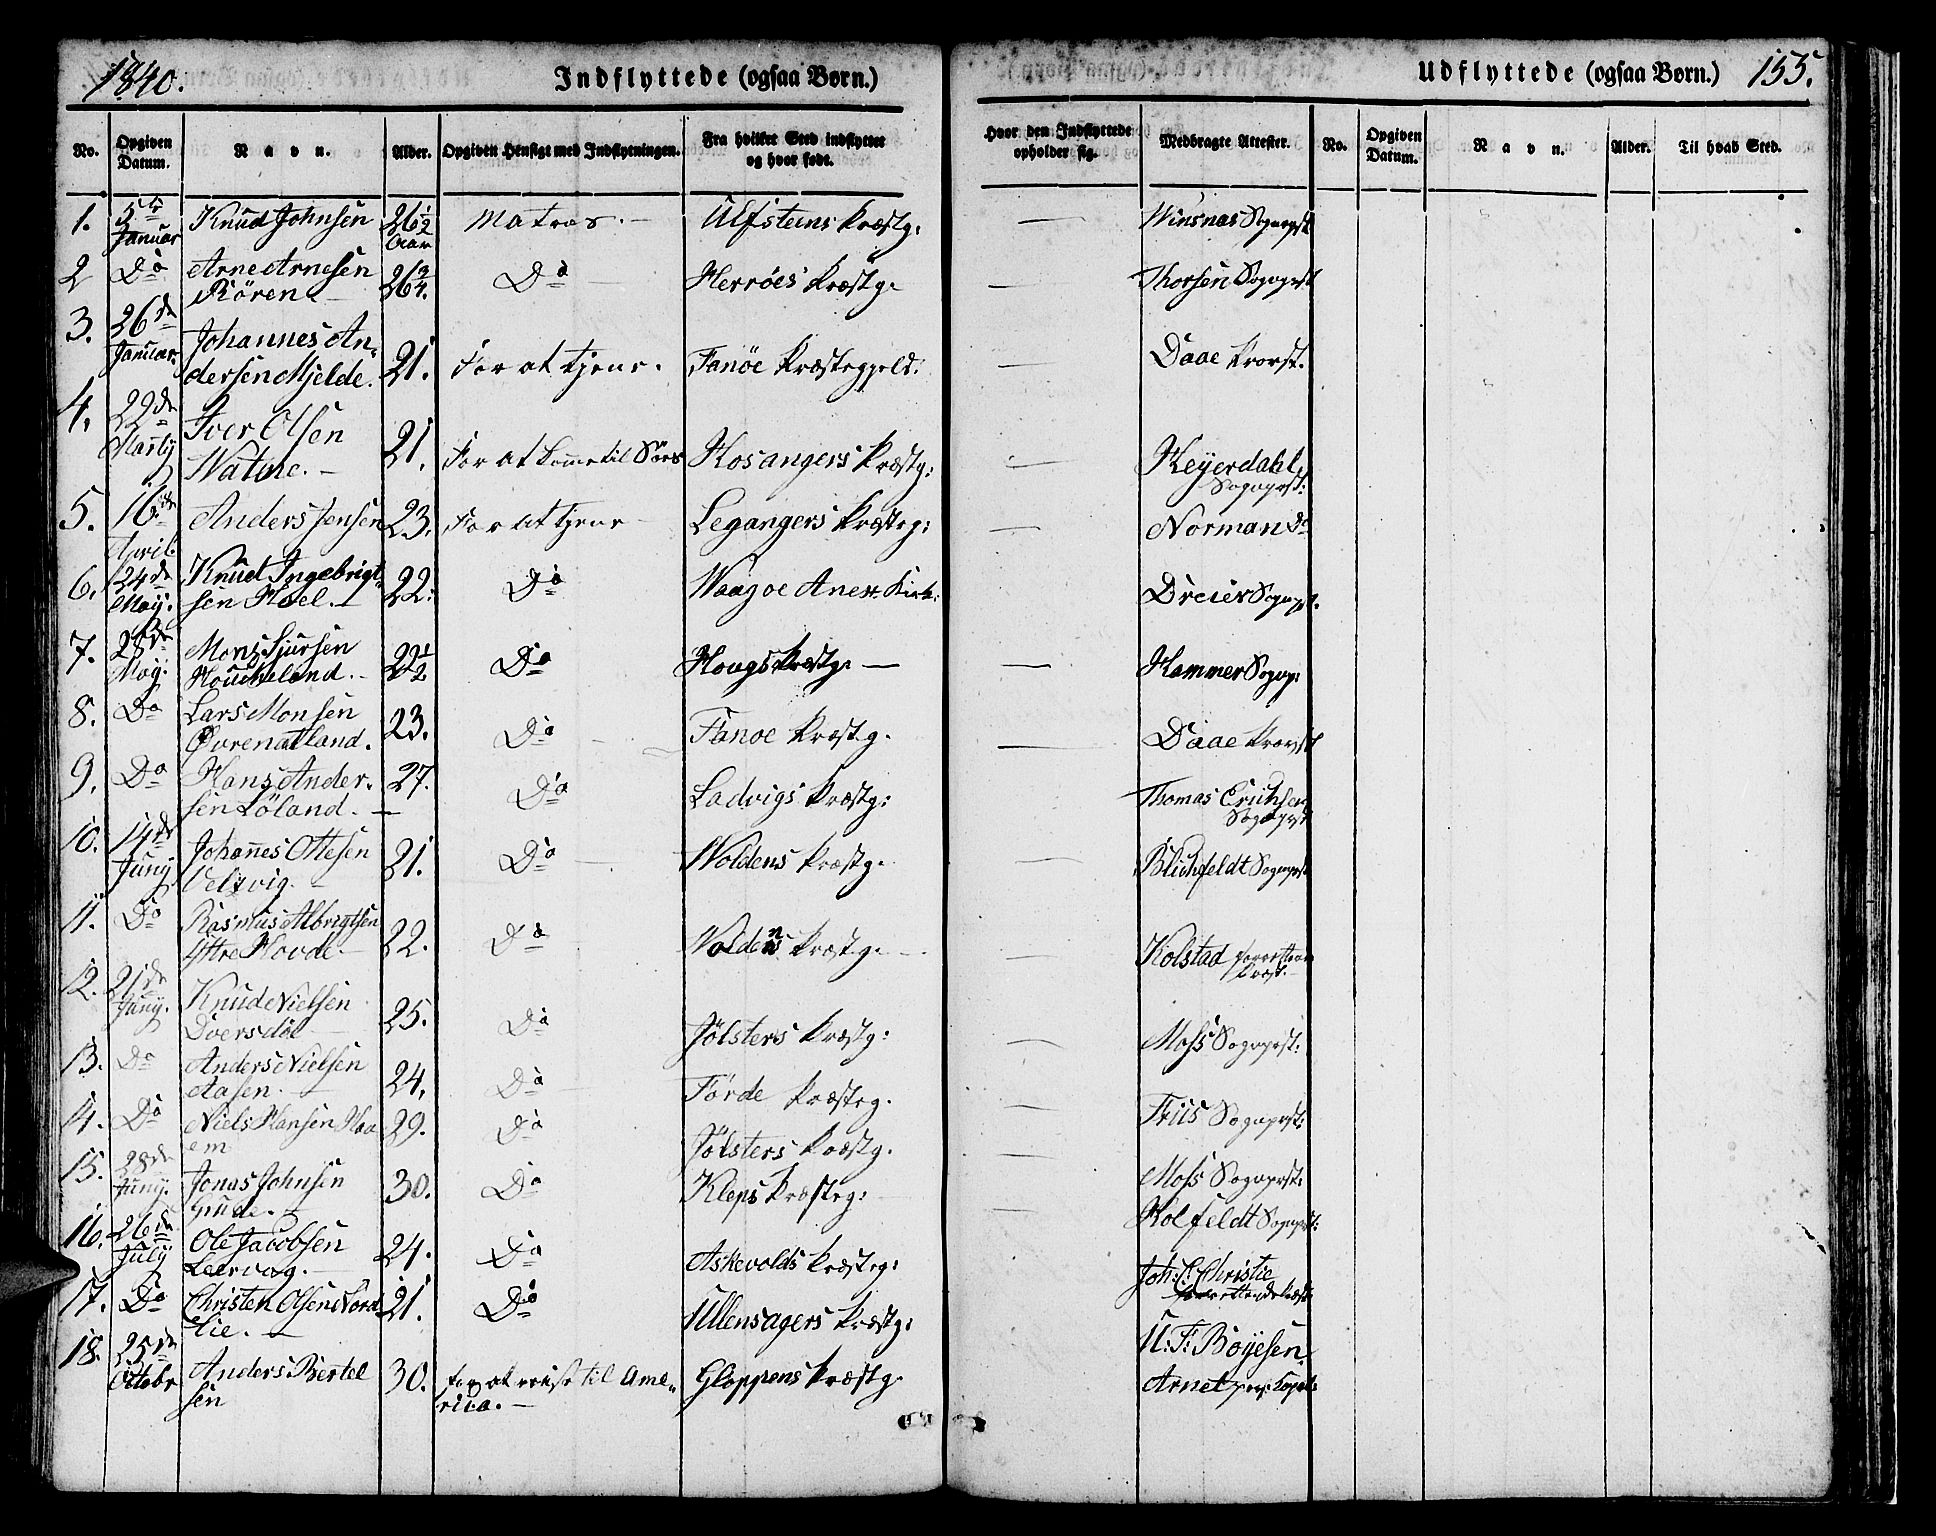 1840.
Indflyttede (ogsaa Børn.)
Udflyttede (ogsaa Børn.) 155.
No. Opgiven Datum. Navn. Alder. Opgiven Hensigt med Indflytningen. Fra hvilket Sted indflyttet og hvor født. Hvor den Indflyttede opholder sig. Medbragte Attester. No. Opgiven Datum. Navn. Alder. Til hvad Sted.
1. 5te Januar Knud Johnsen 26 1/2 Aar Matros. Ulfsteins Præstg. Winsnas Sogneprst
2 Do Arne Arnesen Rören 26 3/4. Do Herröes Præstg. Thorsen Sogneprst
3. 26de Januar Johannes Andersen Mjelde. 21. For at tjene. Fanöe Præstegjeld. Daae Provst.
4. 29de Martij Iver Olsen Watne. 21. For at komme til Søes Hosangers Præstg: Heyerdahl Sogneprst:
5. 16de April. Anders Jensen 23. For at tjene Legangers Præsteg: Norman Do
6. 24de May. Knud Ingebrigtsen Hoel. 22. Do Waagoe Anex Kirke: Dreier Sogneprst.
7. 28de May: Mons Sjursen Houcheland. 22 1/2 Do Hougs Præstg. Hammer Sognep:
8. Do Lars Monsen Øvrenatland. 23. Do Fanoe Præstg. Daae Provst
9. Do Hans Andersen Löland. 27. Do Ladvigs Præstg: Thomas Erichsen Sogneprst
10. 14de Juny Johañes Ottesen Veltvig. 21. Do Woldens Præstg. Blichfeldt Sogneprst
11. Do Rasmus Albrigtsen Yttre Hovde. 22. Do Woldens Præstg. Kolstad forrettende Præst.
12. 21de Juny. Knud Nielsen Dversdal 25. Do Jölsters Præstg: Moss Sogneprst:
13. Do Anders Nielsen Aasen. 24. Do Förde Præsteg. Friis Sogneprst:
14. Do Niels Hansen Haaem 29. Do Jölsters Præstg. Moss Sogneprst:
15. 28de Juny. Jonas Johnsen Gude. 30. Do Kleps Præsteg: Holfeldt Sogneprst:
16. 26de July Ole Jacobsen Leervog. 24. Do Askevolds Præsteg: Joh: C: Christie forrettende Præst
17. Do Christen Olsen Nordlie. 21. Do Ullensagers Præstg: N: F: Boyesen.
18. 25de Octobr Anders Bertelsen 30. for at reise til America. Gloppens Præstg. Arnet pers: Capel: